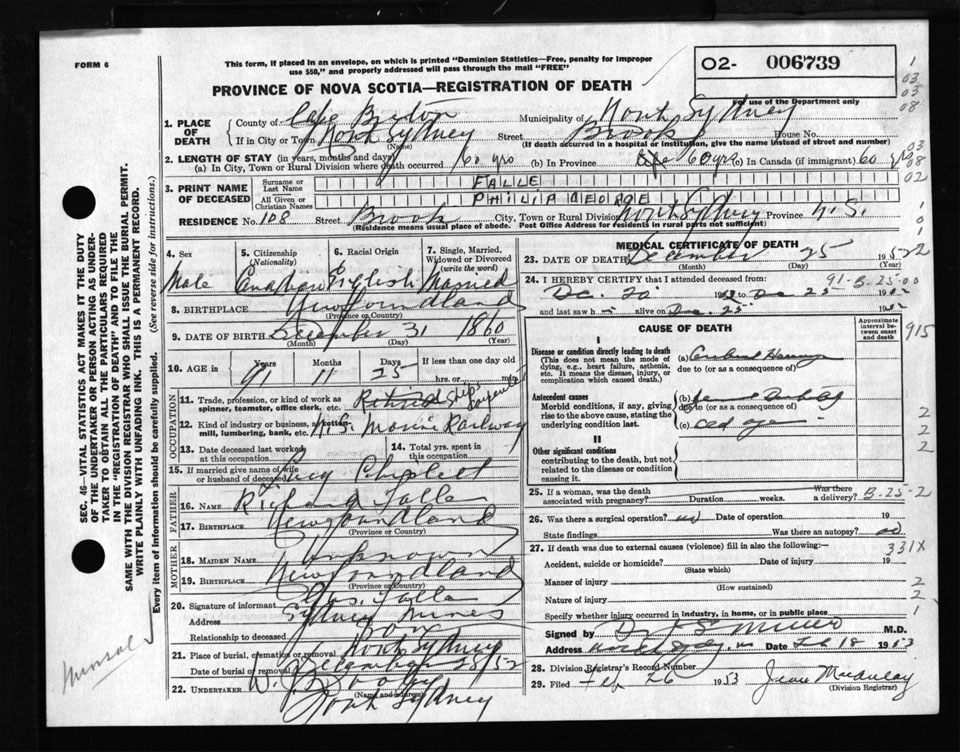 FORM 6
This form, if placed in an envelope, on which is printed "Dominion Statistics—Free, penalty for improper
use $50," and properly addressed will pass through the mail "FREE"
O2- 006739
For use of the Department only
PROVINCE OF NOVA SCOTIA—REGISTRATION OF DEATH
1
03
03
08
03
08
02
1. PLACE OF DEATH
County of Cape Breton Municipality of North Sydney
If in City or Town North Sydney Street Brook House No.
(Name) (If death occurred in a hospital or institution, give the name instead of street and number)
2. LENGTH OF STAY (in years, months and days)
(a) In City, Town or Rural Division where death occurred 60 yrs (b) In Province 60 yrs (c) In Canada (if immigrant) 60 yrs
3. PRINT NAME OF DECEASED
Surname or Last Name FALLE
All Given or Christian Names PHILIP GEORGE
RESIDENCE No. 108 Street Brook City, Town or Rural Division North Sydney Province N.S.
(Residence means usual place of abode. Post Office Address for residents in rural parts not sufficient)
4. Sex Male
5. Citizenship (Nationality) Canadian
6. Racial Origin English
7. Single, Married, Widowed or Divorced (write the word) Married
8. BIRTHPLACE Newfoundland
(Province or Country)
9. DATE OF BIRTH December 31 1860
(Month) (Day) (Year)
10. AGE in Years 91 Months 11 Days 25 If less than one day old
hrs. or min.
OCCUPATION
11. Trade, profession, or kind of work as spinner, teamster, office clerk, etc. Retired Ships Carpenter
12. Kind of industry or business, as cotton-mill, lumbering, bank, etc. Railway
13. Date deceased last worked at this occupation
14. Total yrs. spent in this occupation
15. If married give name of wife or husband of deceased Lucy
FATHER
16. NAME Richard Falle
17. BIRTHPLACE Newfoundland
(Province or Country)
MOTHER
18. MAIDEN NAME Unknown
19. BIRTHPLACE Newfoundland
(Province or Country)
20. Signature of informant Chas. Falle
Address Sydney Mines
Relationship to deceased Son
21. Place of burial, cremation or removal North Sydney
Date of burial or removal December 28/52
22. UNDERTAKER
(Name and address)
North Sydney
MEDICAL CERTIFICATE OF DEATH
23. DATE OF DEATH December 25 1952
(Month) (Day) (Year)
24. I HEREBY CERTIFY that I attended deceased from:
91-B-25-00
Dec. 20 Dec 25 19
and last saw h alive on Dec. 25 19
CAUSE OF DEATH
Approximate interval between onset and death
915
I
Disease or condition directly leading to death
(This does not mean the mode of dying, e.g., heart failure, asthenia, etc. It means the disease, injury, or complication which caused death.)
(a)
due to (or as a consequence of)
Antecedent causes
Morbid conditions, if any, giving rise to the above cause, stating the underlying condition last.
(b)
due to (or as a consequence of)
(c) old age
II
Other significant conditions
contributing to the death, but not related to the disease or condition causing it.
2
2
2
25. If a woman, was the death associated with pregnancy? Duration weeks. Was there a delivery? B-25-2
26. Was there a surgical operation? no Date of operation 19
State findings Was there an autopsy? no
27. If death was due to external causes (violence) fill in also the following:— 331X
Accident, suicide or homicide? Date of injury 19
(State which)
Manner of injury 2
(How sustained)
Nature of injury 2
Specify whether injury occurred in industry, in home, or in public place 1
Signed by M.D.
Address North Sydney, NS Date Feb 18 1953
28. Division Registrar's Record Number
29. Filed Feb 26 1953 Jean
(Division Registrar)
SEC. 46—VITAL STATISTICS ACT MAKES IT THE DUTY
OF THE UNDERTAKER OR PERSON ACTING AS UNDER-
TAKER TO OBTAIN ALL THE PARTICULARS REQUIRED
IN THE "REGISTRATION OF DEATH" AND TO FILE THE
SAME WITH THE DIVISION REGISTRAR WHO SHALL ISSUE THE BURIAL PERMIT.
WRITE PLAINLY WITH UNFADING INK. THIS IS A PERMANENT RECORD.
Every item of information should be carefully supplied. (See reverse side for instructions.)